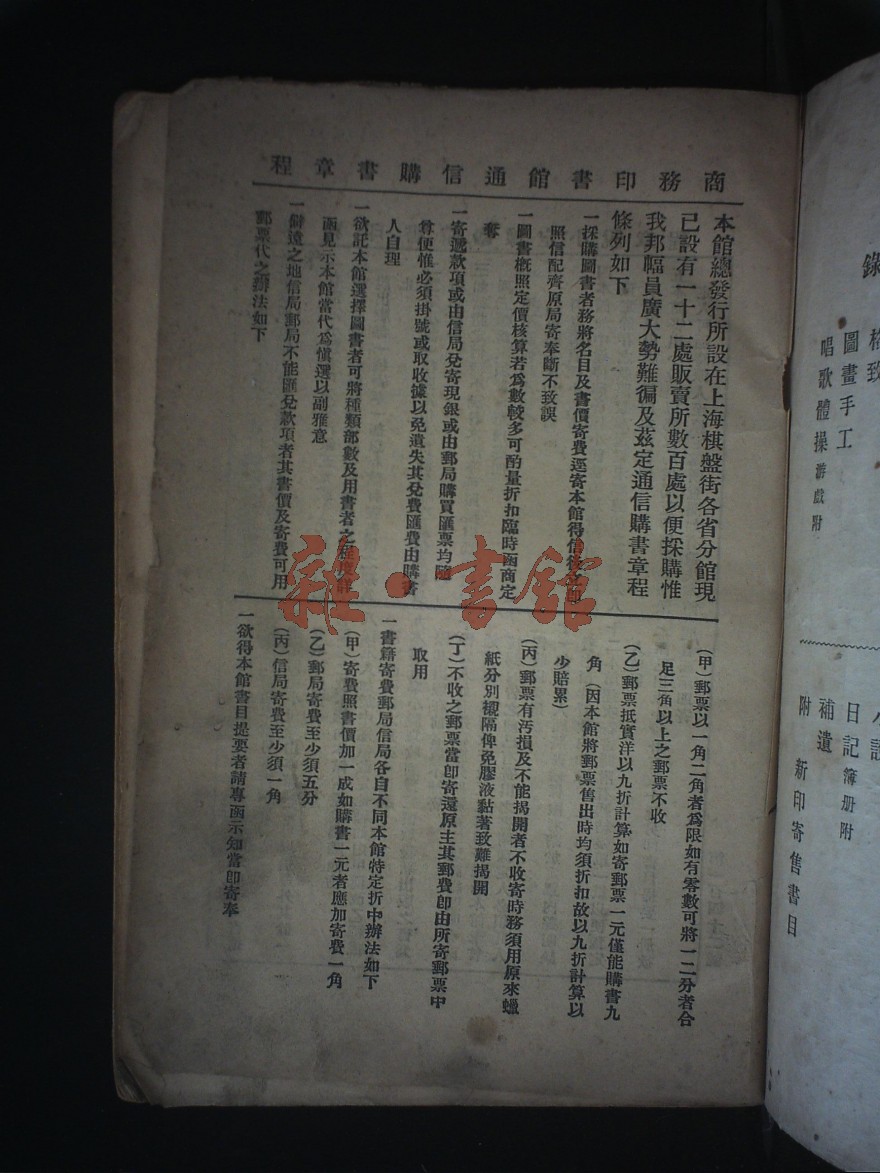 商務印書館通信購書章程
本館總發行所設在上海棋盤街各省分館現
已設有一十二處販賣所數百處以便採購惟
我邦幅員廣大勢難徧及茲定通信購書章程
條列如下
一採購圖書者務將名目及書價寄費逕寄本館得信後立即
照信配齊原局寄奉斷不致誤
一圖書概照定價核算若爲數較多可酌量折扣臨時函商定
奪
一寄遞款項或由信局兌寄現銀或由郵局購買匯票均隨
尊便惟必須掛號或取收據以免遺失其兌費匯費由購書
人自理
一欲託本館選擇圖書者可將種類部數及用書者之程度詳
函見示本館當代爲愼選以副雅意
一僻遠之地信局郵局不能匯兌款項者其書價及寄費可用
郵票代之辦法如下
(甲)郵票以一角二角者爲限如有零數可將一二分者合
足三角以上之郵票不收
(乙)郵票抵實洋以九折計算如寄郵票一元僅能購書九
角(因本館將郵票售出時均須折扣故以九折計算以
少賠累)
(丙)郵票有汚損及不能揭開者不收寄時務須用原來蠟
紙分別襯隔俾免膠液黏著致難揭開
(丁)不收之郵票當卽寄還原主其郵費卽由所寄郵票中
取用
一書籍寄費郵局信局各自不同本館特定折中辦法如下
(甲)寄費照書價加一成如購書一元者應加寄費一角
(乙)郵局寄費至少須五分
(丙)信局寄費至少須一角
一欲得本館書目提要者請專函示知當卽寄奉
雜·書館
錄
格致
圖畫手工
唱歌體操游戲附
日記簿册附
補遺
附 新印寄售書目